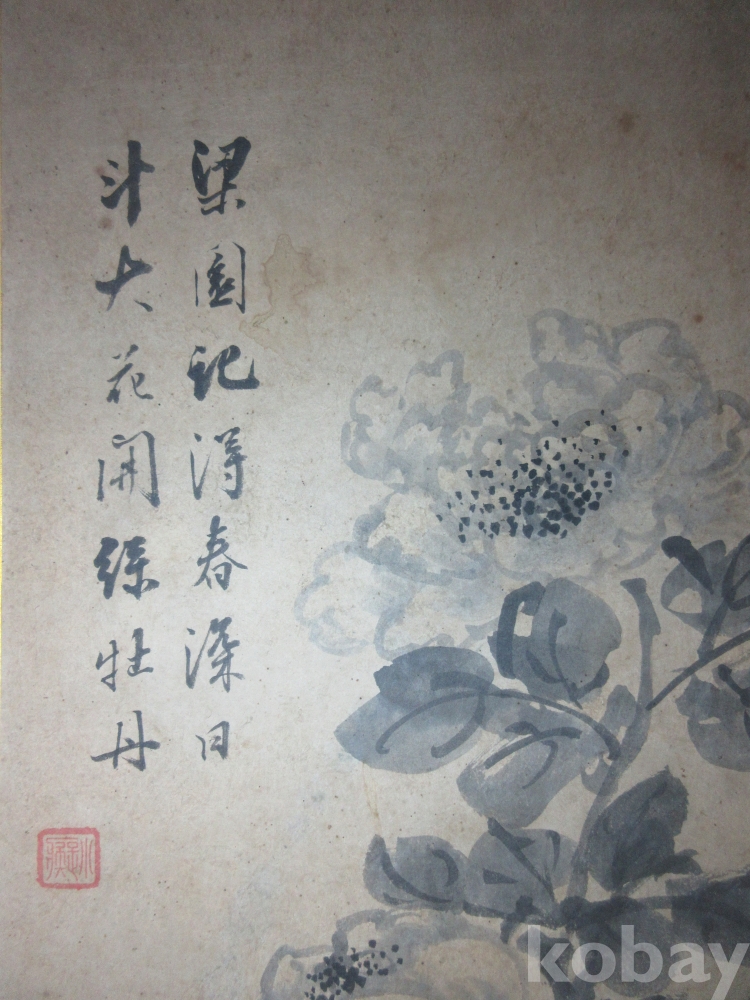 梁園記得春深日
斗大花開緑牡丹
kobay